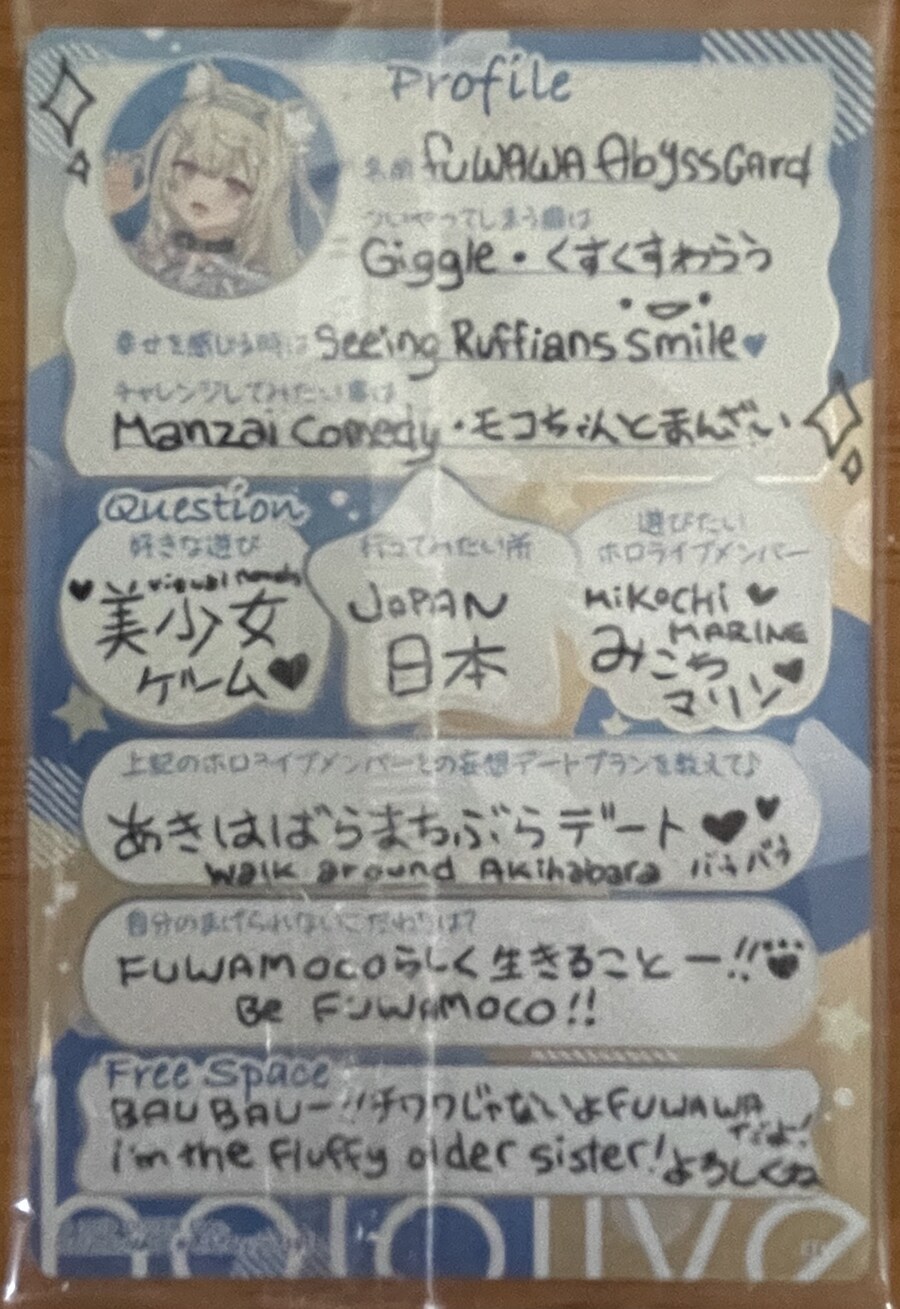 Profile
名前 fUWAWA AbyssGard
ついやってしまう癖は
Giggle・くすくすわらう
幸せを感じる時は Seeing Ruffians smile♥
チャレンジしてみたい事は
Manzai Comedy・モコちゃんとまんざい
Question
好きな遊び
visual novels
美少女
ゲーム♥
行ってみたい所
JAPAN
日本
遊びたい
ホロライブメンバー
MiKOCHi ♥
MARINE
みこち
マリン♥
上記のホロライブメンバーとの妄想デートプランを教えて♪
あきはばらまちぶらデート ♥♥
Walk around Akihabara バウバウ
自分のまげられないこだわりは?
FUWAMOCOらしく生きることー!!
Be FUWAMOCO!!
Free Space
BAU BAUー!!チワワじゃないよFUWAWA
だよ!
i'm the Fluffy older sister!よろしくね
hololive